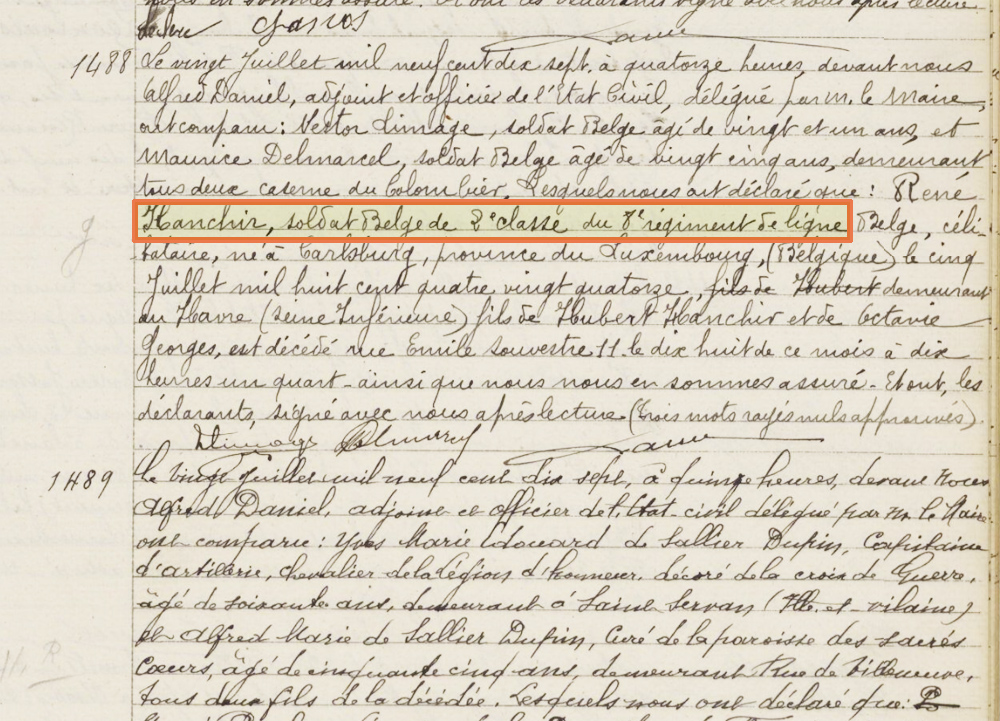 Chanos
1488 Le vingt Juillet mil neuf cent dix sept, à quatorze heures, devant nous
Alfred Daniel, adjoint et officier de l'Etat Civil, délégué par M. le Maire,
ont comparu : Victor Limage, soldat Belge âgé de vingt et un ans, et
Maurice Delmarcel, soldat Belge âgé de vingt cinq ans, demeurant
tous deux caserne du Colombier. Lesquels nous ont déclaré que : René
Hanchir, soldat Belge de 2e classe du 8e régiment de ligne Belge, céli-
bataire, né à Carlsburg, province du Luxembourg, (Belgique) le cinq
Juillet mil huit cent quatre vingt quatorze, fils de Hubert demeurant
au Havre (Seine Inférieure) fils de Hubert Hanchir et de Octavie
Georges, est décédé rue Emile Souvestre 11 le dix huit de ce mois à dix
heures un quart - ainsi que nous nous en sommes assuré - Et ont, les
déclarants, signé avec nous après lecture. (Trois mots rayés nuls approuvés).
1489 Le vingt Juillet mil neuf cent dix sept, à quinze heures, devant Nous
Alfred Daniel, adjoint et officier de l'Etat-civil délégué par m. le Maire
ont comparu : Yves Marie Edouard de Sallier Dupin, Capitaine
d'artillerie, chevalier de la légion d'honneur, décoré de la croix de Guerre,
âgé de soixante ans, demeurant à Saint Servan (Ille-et-vilaine)
et Alfred Marie de Sallier Dupin, Curé de la paroisse des sacrés
Cœurs, âgé de cinquante cinq ans, demeurant Rue de Villeneuve,
tous deux fils de la décédée. Lesquels nous ont déclaré que :